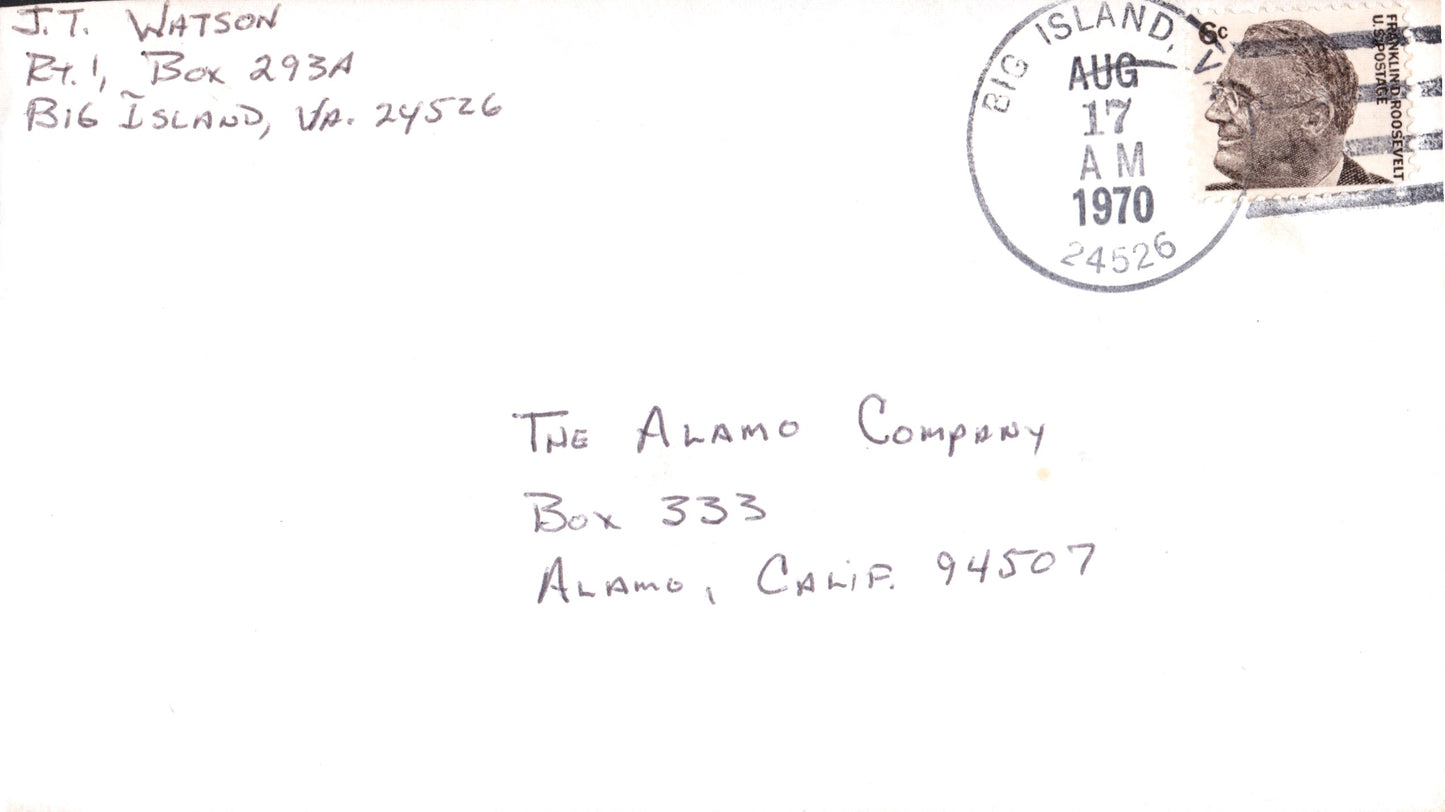 J.T. WATSON
RT. 1, BOX 293A
BIG ISLAND, VA. 24526
BIG ISLAND, V
AUG
17
AM
1970
24526
6c
FRANKLIN D. ROOSEVELT
U.S. POSTAGE
THE ALAMO COMPANY
BOX 333
ALAMO, CALIF. 94507